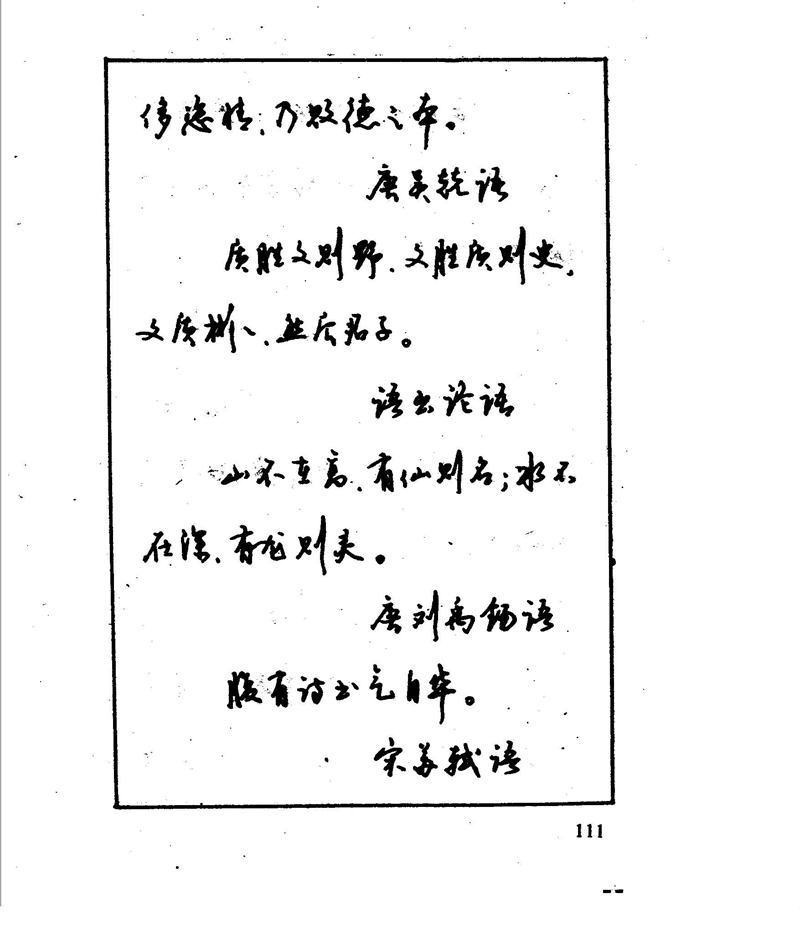 侈恣情、乃败德之本。
唐吴兢语
质胜文则野、文胜质则史,
文质彬彬、然后君子。
语出论语
山不在高、有仙则名;水不
在深、有龙则灵。
唐刘禹锡语
腹有诗书气自华。
宋苏轼语
111